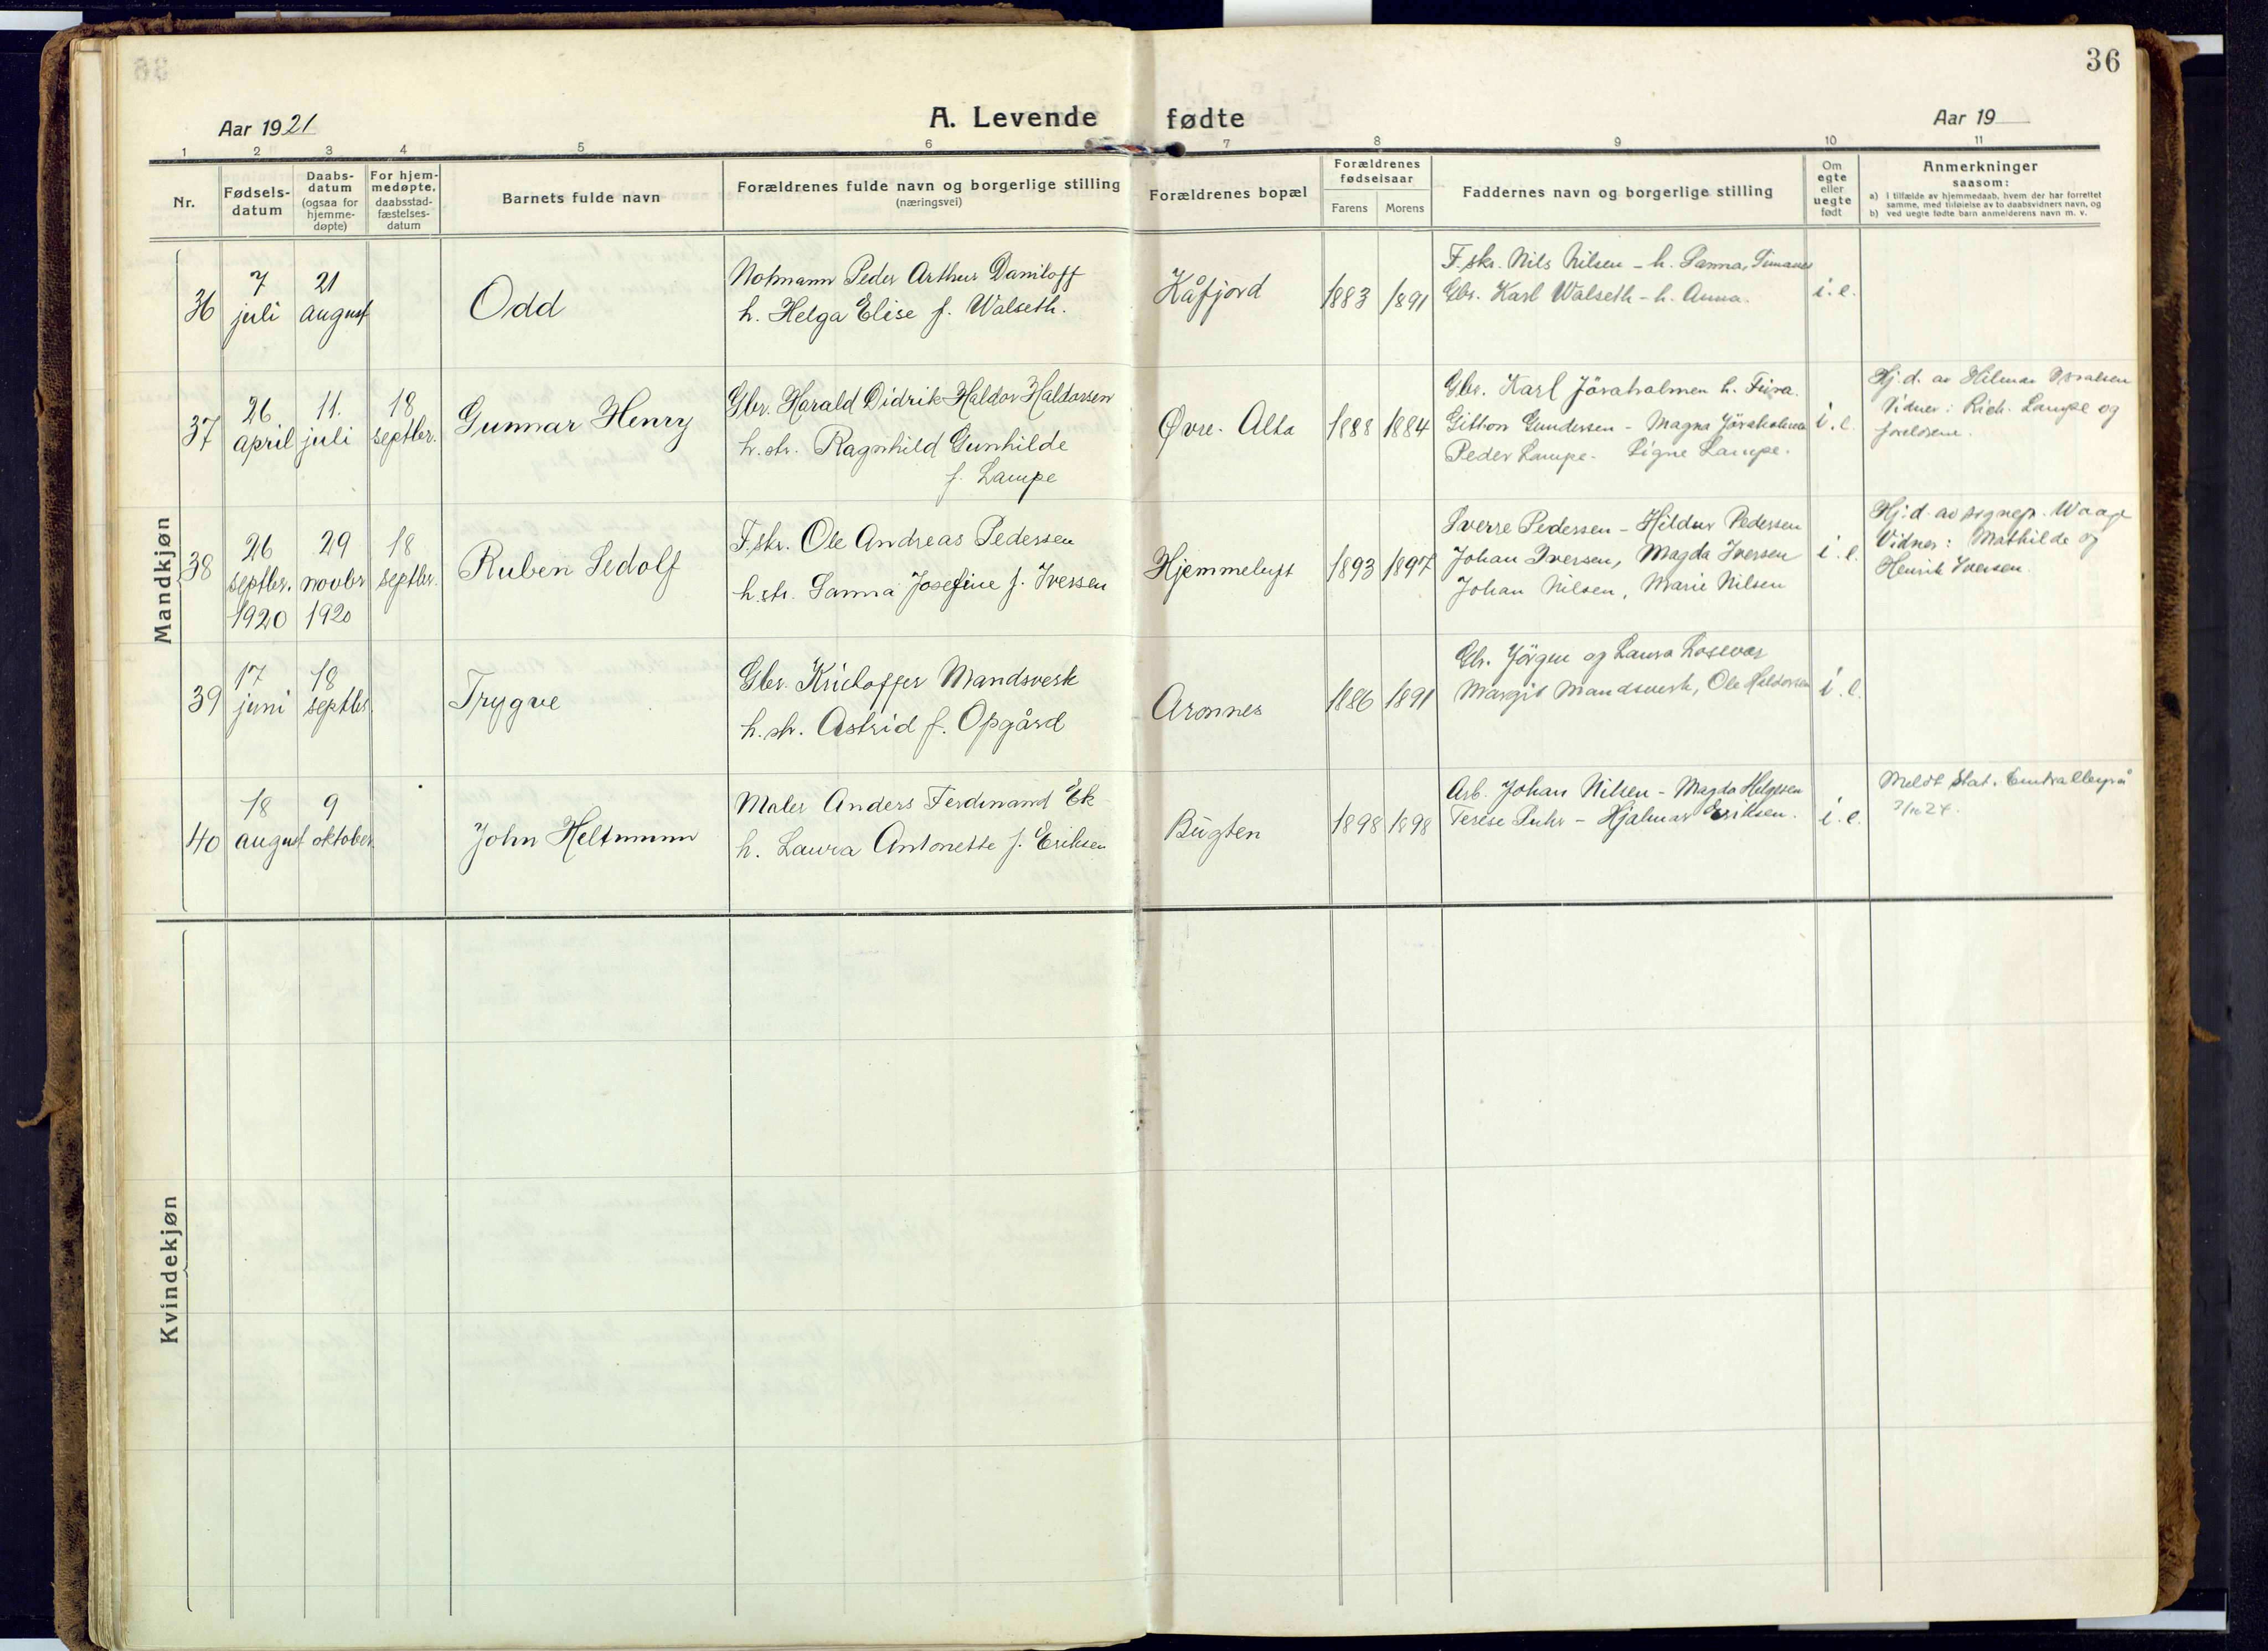 36
Aar 1921
A. Levende fødte
Aar 19
1 2 3 4 5 6 7 8 9 10 11
Nr.
Fødsels-
datum
Daabs-
datum
(ogsaa for
hjemme-
døpte)
For hjem-
medøpte,
daabsstad-
fæstelses-
datum
Barnets fulde navn
Forældrenes fulde navn og borgerlige stilling
(næringsvei)
Forældrenes bopæl
Forældrenes
fødselsaar
Farens Morens
Faddernes navn og borgerlige stilling
Om
egte
eller
uegte
født
Anmerkninger
saasom:
a) i tilfælde av hjemmedaab, hvem der har forrettet
samme, med tilføielse av to daabsvidners navn, og
b) ved uegte fødte barn anmelderens navn m. v.
Mandkjøn
36
7
juli
21
august
Odd
Notmann Peder Arthur Daniloff
h. Helga Elise f. Walseth.
Kåfjord
1883 1891
F.skr. Nils Nilsen - h. Sanna,
Gbr. Karl Walseth - h. Anna.
i. e.
37
26
april
11.
juli
18
septbr.
Gunnar Henry
Gbr. Harald Didrik Haldor Haldorsen
h. str. Ragnhild Gunhilde
f. Lampe
Øvre-Alta
1888 1884
Gbr. Karl Jöraholmen h.
Gundersen - Magna Jöraholmen
Peder Lampe - Signe Lampe.
i. e.
Hj. d. av Hilmar
Vidner: Rich. Lampe og
foreldrene.
38
26
septbr.
1920
29
novbr
1920
18
septbr.
Ruben Sedolf
F.skr. Ole Andreas Pedersen
h. str. Sanna Josefine f. Iversen
Hjemmeluft
1893 1897
Sverre Pedersen - Hildur Pedersen
Johan Iversen, Magda Iversen
Johan Nilsen, Marie Nilsen
i. e.
Hj. d. av sognepr. Waage
Vidner: Mathilde og
Henrik Iversen.
39
17
juni
18
septbr.
Trygve
Gbr. Kristoffer Mandsverk
h. str. Astrid f. Opgård
Aronnes
1886 1891
Gbr. Jörgen og Laura
Margit Mandsverk, Ole Haldorsen
i. e.
40
18
august
9
oktober
John Heltmunn
Maler Anders Ferdinand Ek
h. Laura Antonette f. Eriksen
Bugten
1898 1898
Arb. Johan Nilsen - Magda Helgesen
Terese Suhr - Hjalmar Eriksen.
i. e.
Meldt Stat. Centralbyrå
Kvindekjøn